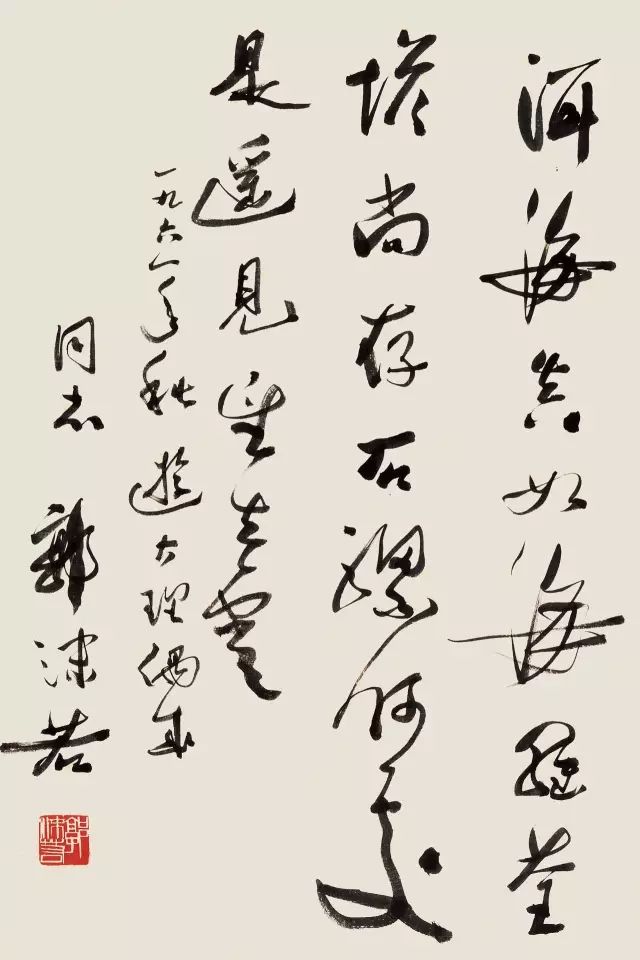 洱海真如海羅荃
塔尚存石騾何處
是遙見望夫雲
一九六一年秋遊大理偶成
同志 郭沫若
郭沫若